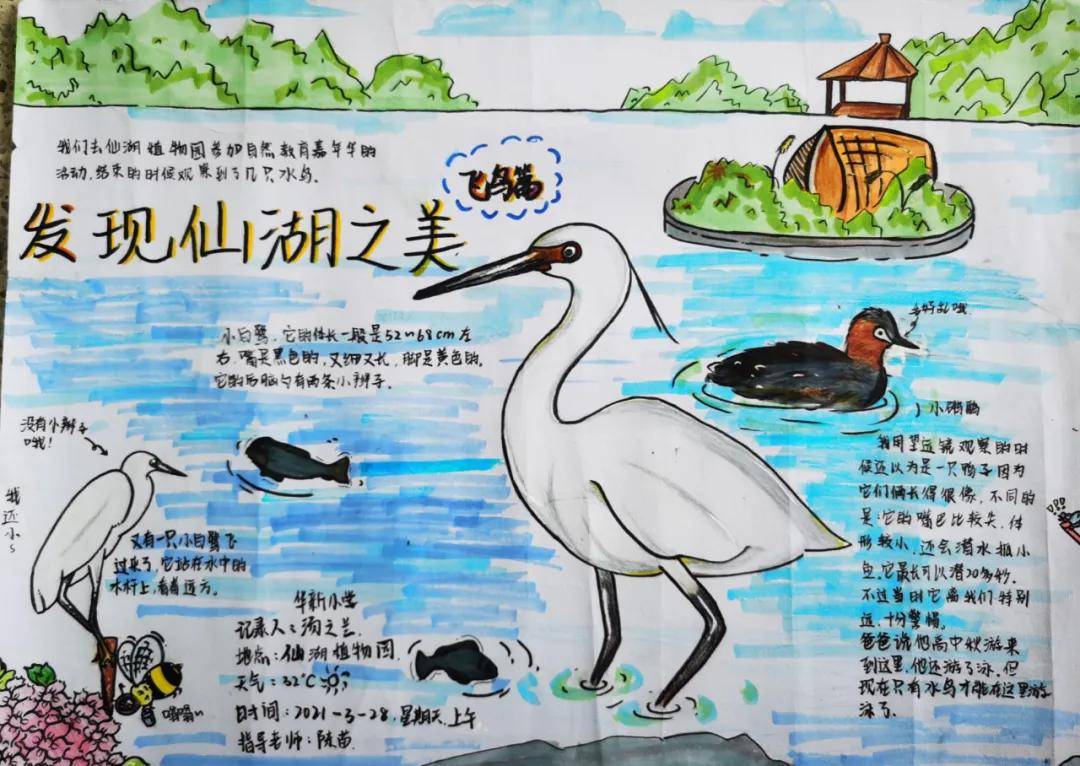 我们去仙湖植物园参加自然教育嘉年华的
活动，结束的时候观察到了几只水鸟。
飞鸟篇
发现仙湖之美
小白鹭，它的体长一般是52~68cm左
右，嘴是黑色的，又细又长，脚是黄色的。
它的后脑勺有两条小辫子。
没有小辫子
哦！
我还小~
又有一只小白鹭飞
过来了，它站在水中的
木杆上，看着远方。
嗡嗡~
华新小学
记录人：汤之兰
地点：仙湖植物园
天气：32℃
时间：2021-3-28，星期天上午
指导老师：陈苗
小䴙䴘
我用望远镜观察的时
候还以为是一只鸭子因为
它们俩长得很像，不同的
是：它的嘴巴比较尖，体
形较小，还会潜水抓小
鱼，它最长可以潜20多秒。
不过当时它离我们特别
远，十分警惕。
爸爸说他高中秋游来
到这里，他还游了泳，但
现在只有水鸟才能在这里游
泳了。